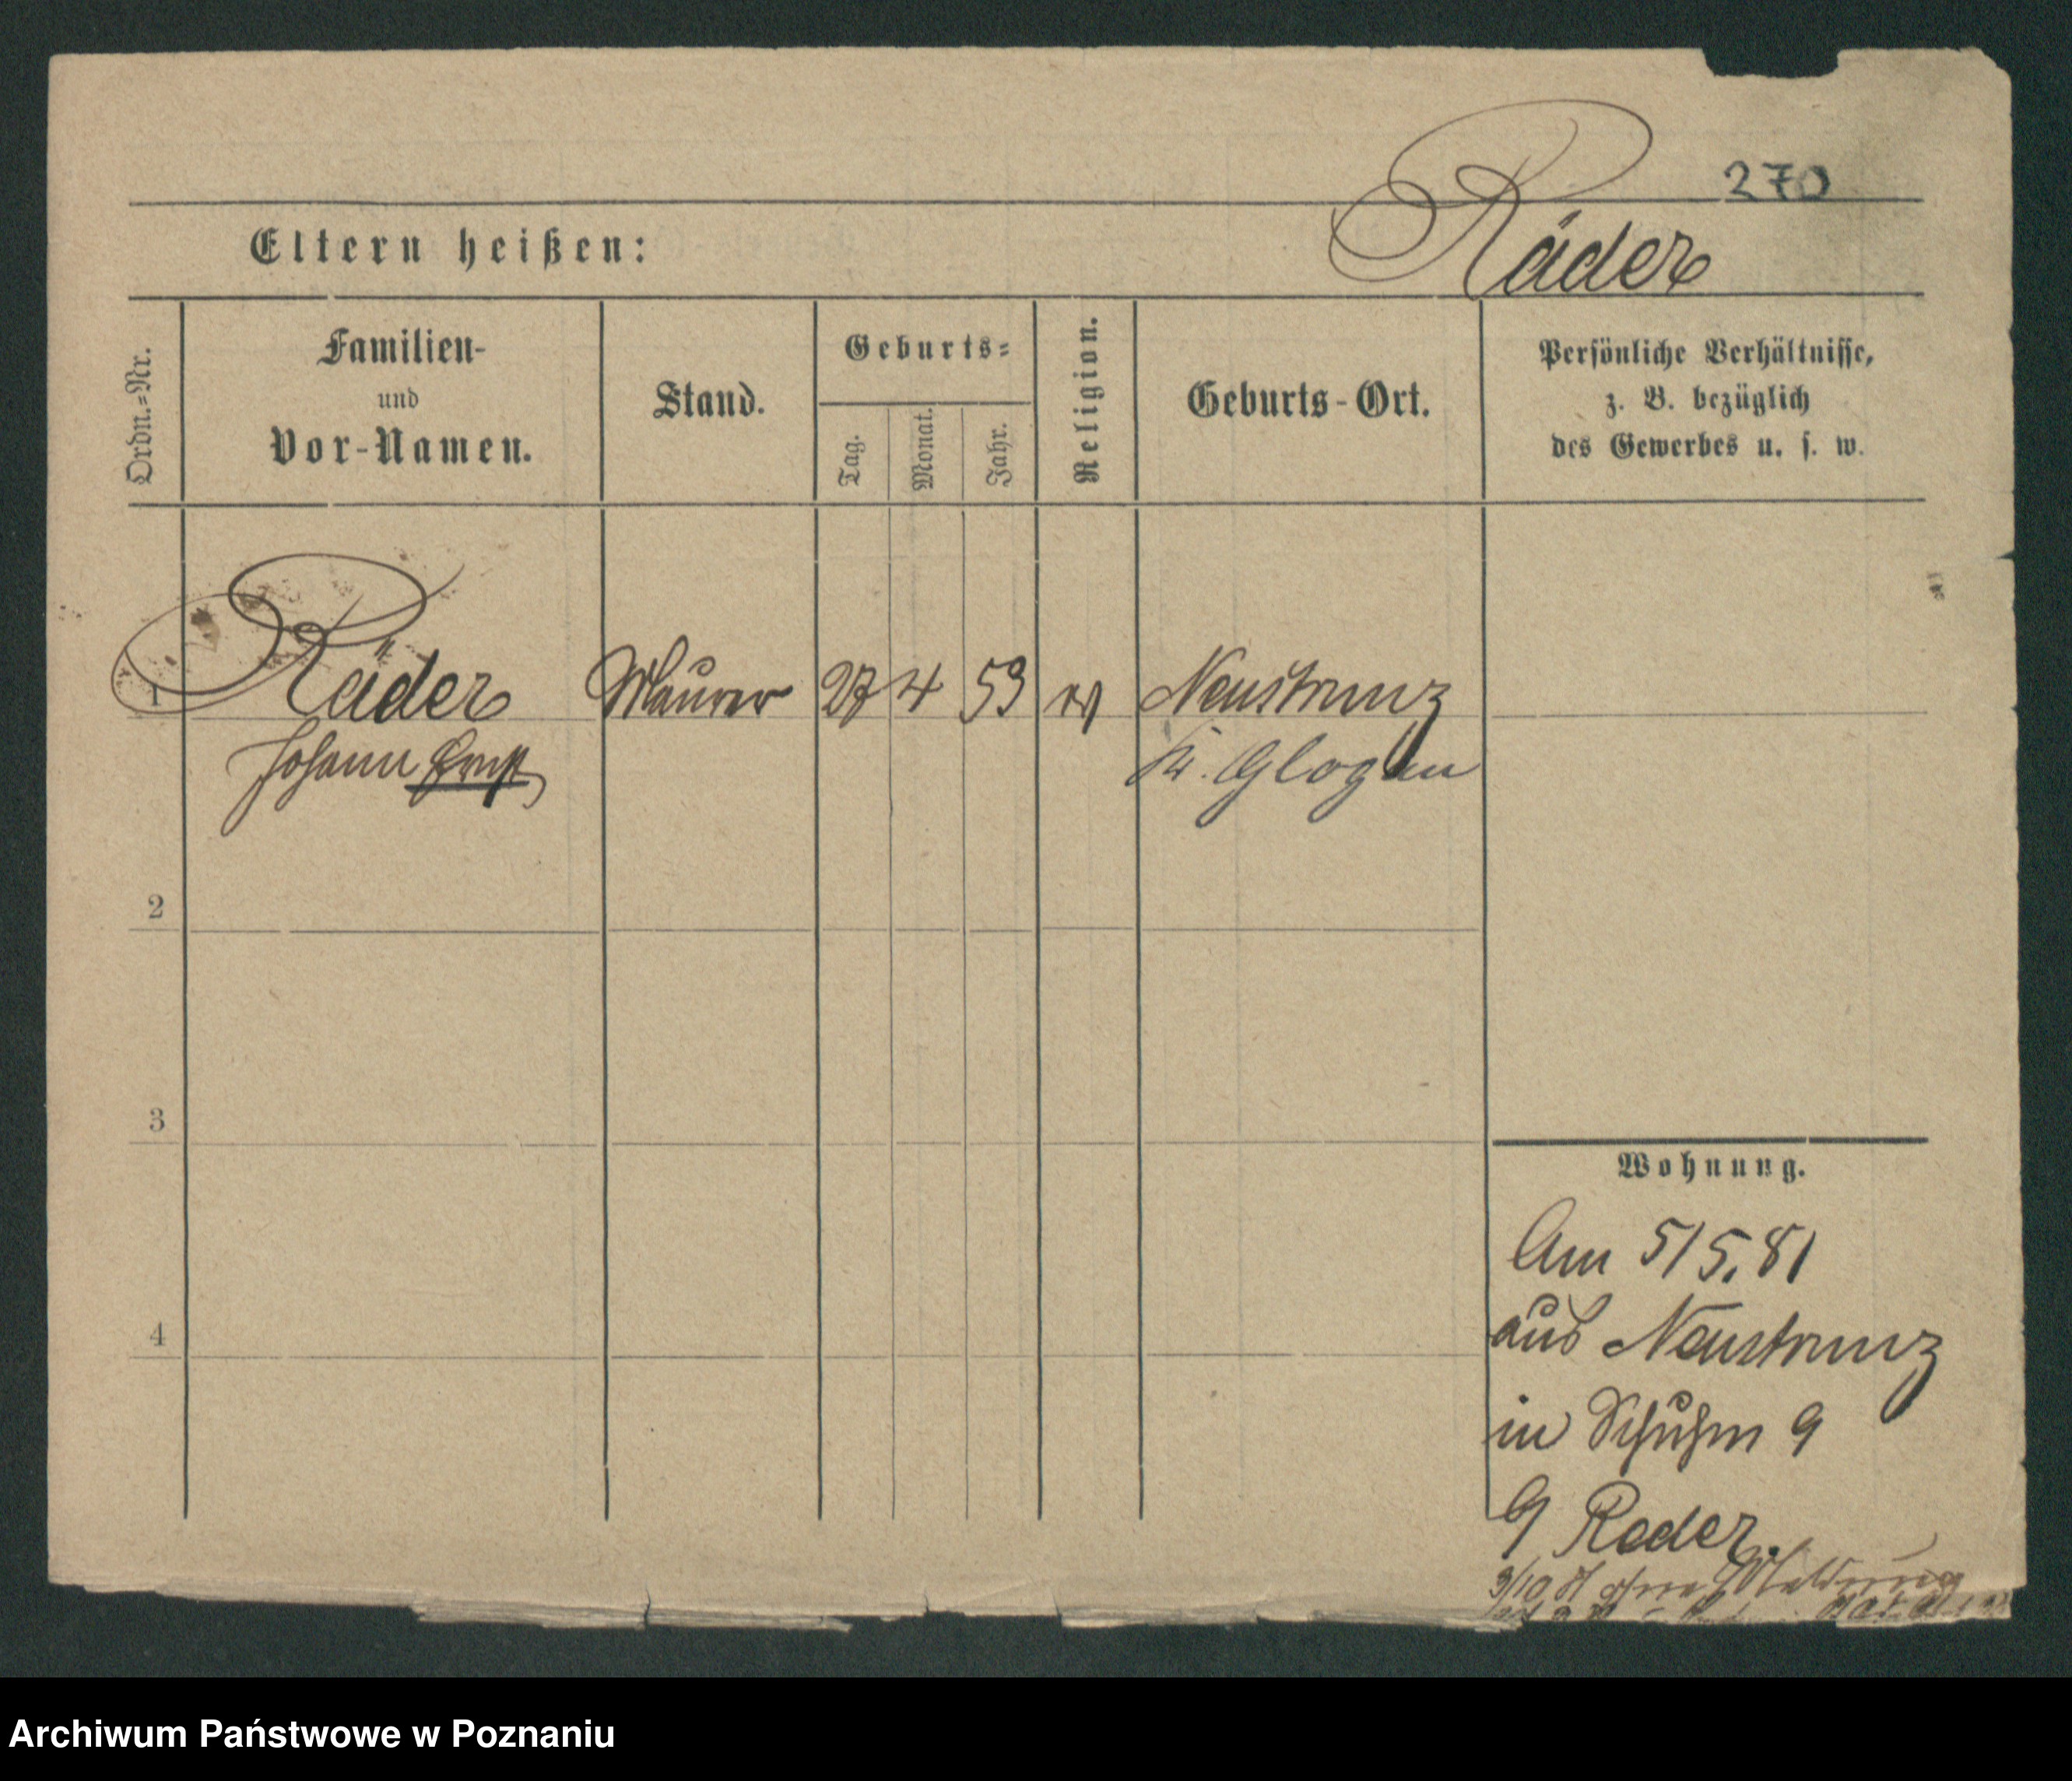 270
Eltern heißen: Räder
Ordn.=Nr.
Familien-
und
Vor-Namen.
Stand.
Geburts=
Tag.
Monat.
Jahr.
Religion.
Geburts-Ort.
Persönliche Verhältnisse,
z. B. bezüglich
des Gewerbes u. s. w.
1 Räder Maurer 27 4 53 Neustrunz
Johann Ernst Kr. Glogau
2
3
4
Wohnung.
Am 5/5.81
aus Neustrunz
in Schuhm 9
Reder.
3/10 ohne Meldung
Archiwum Państwowe w Poznaniu